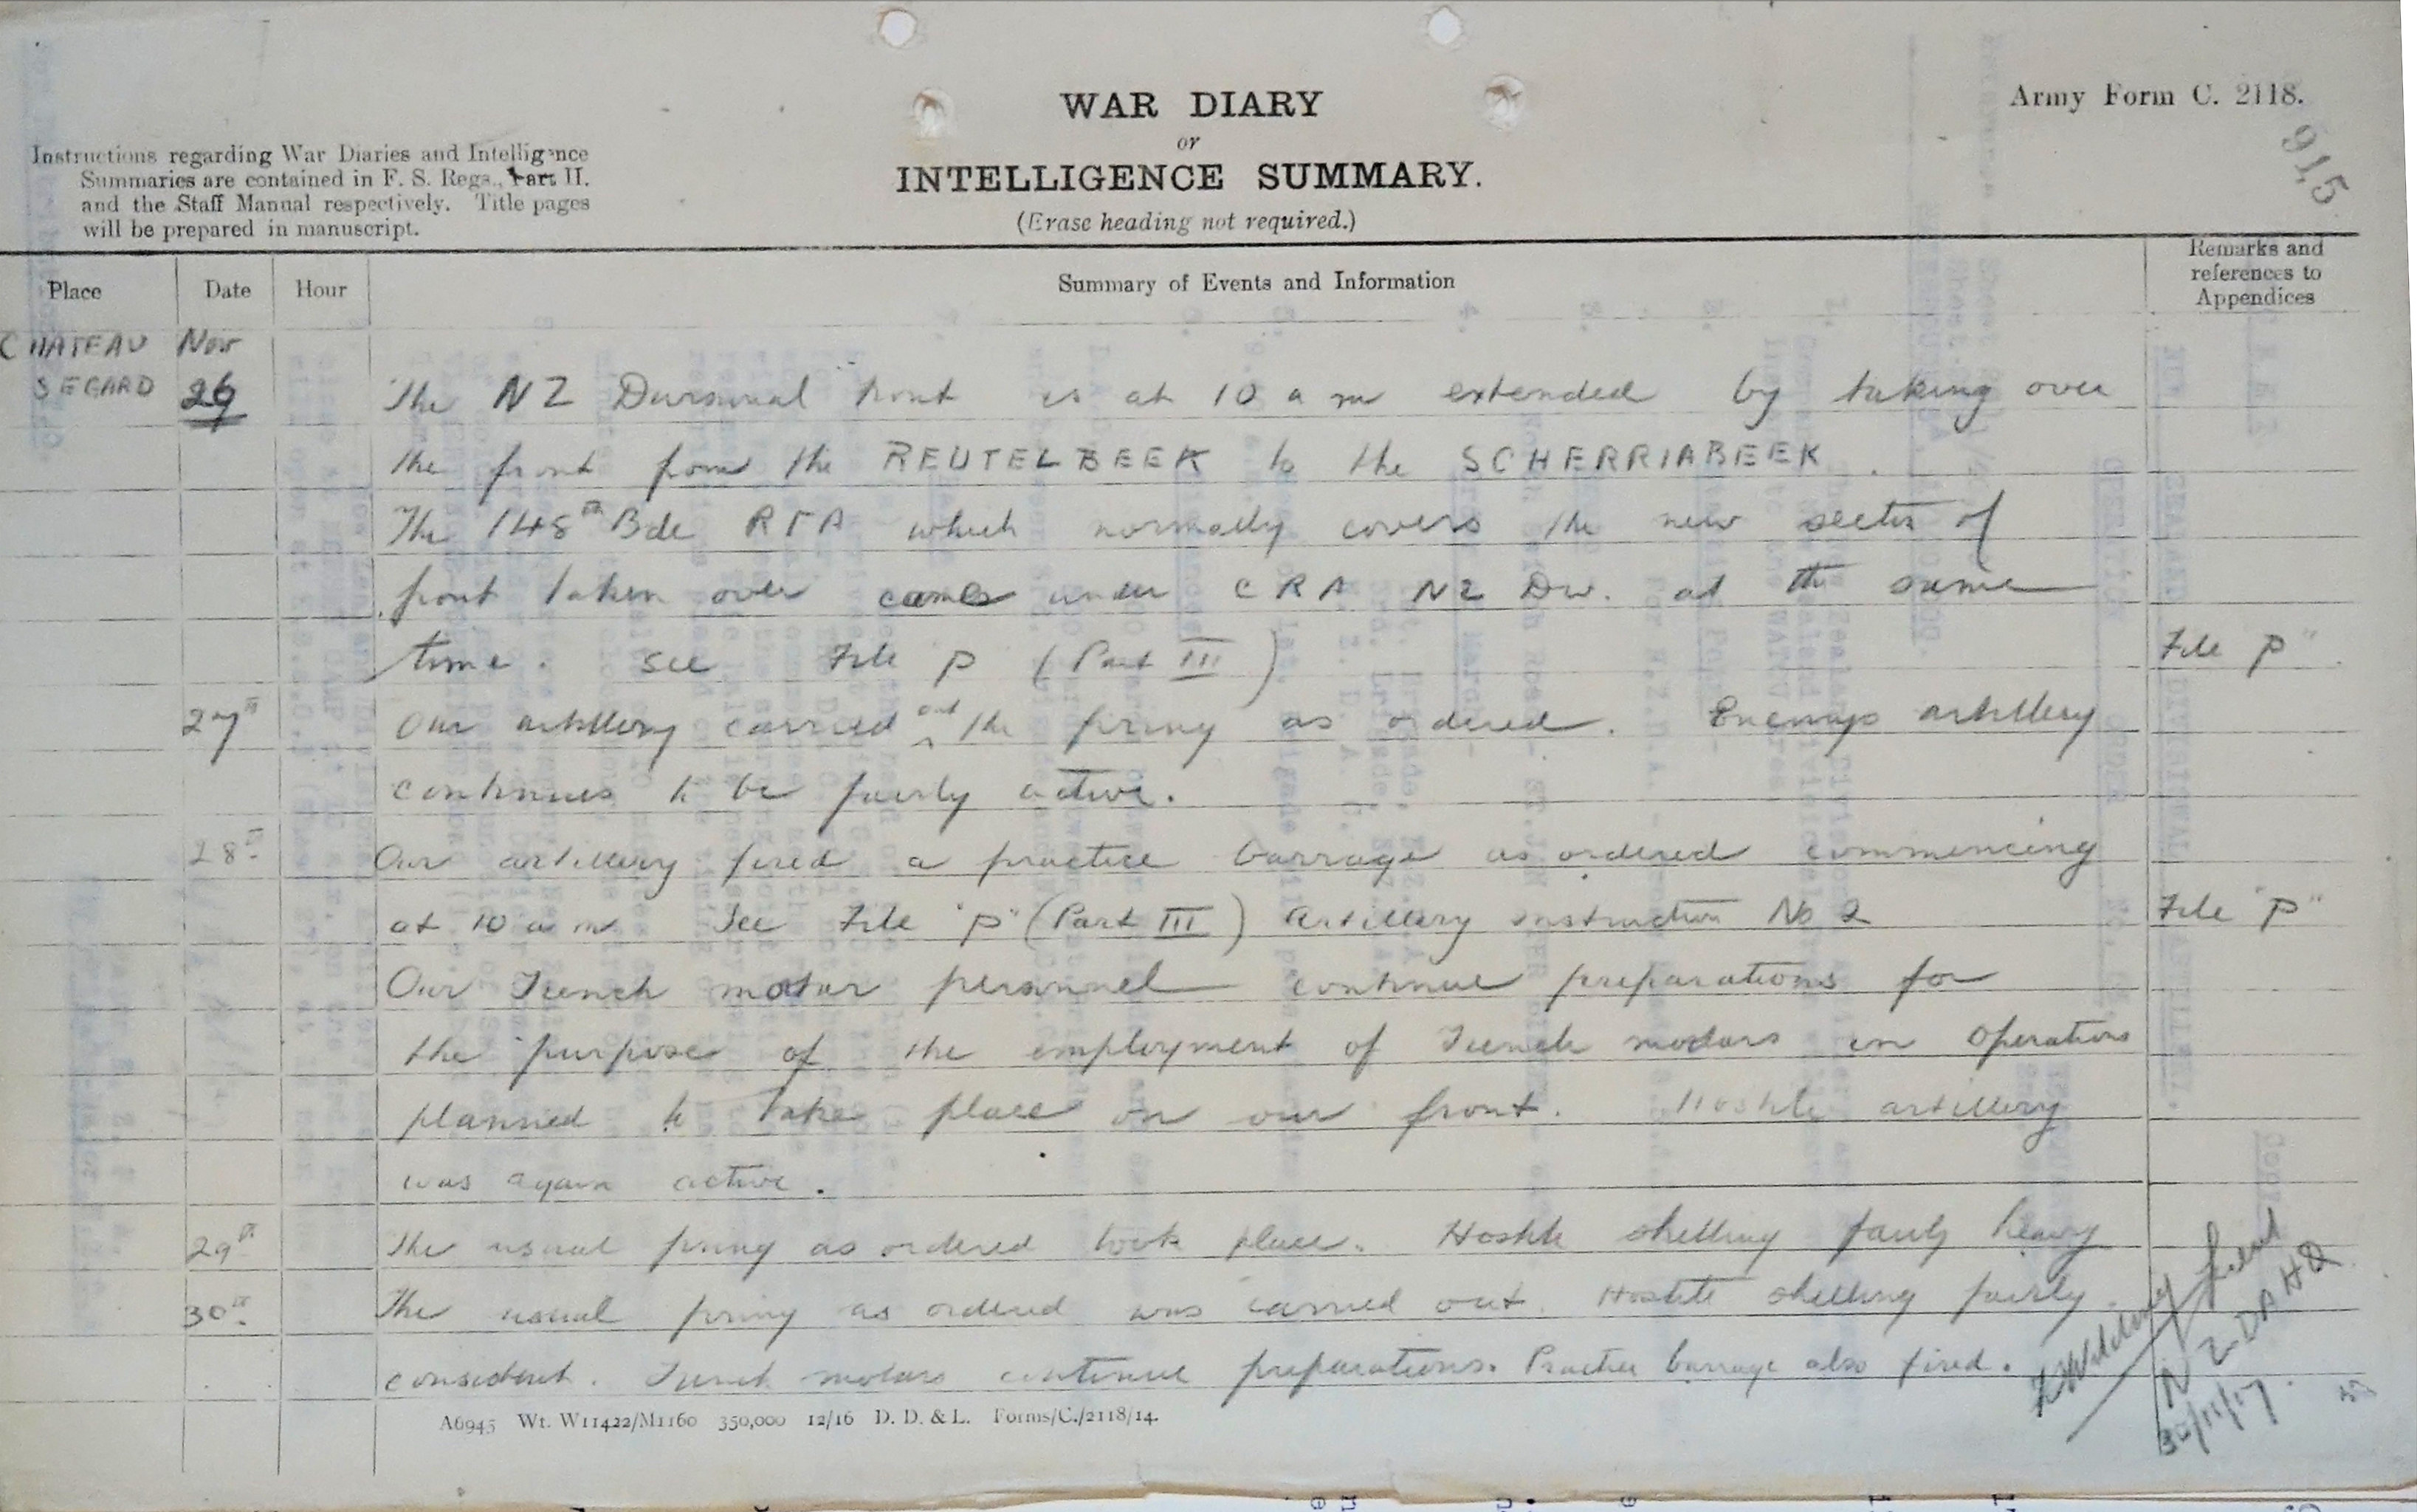 Army Form C. 2118.
915
WAR DIARY
or
INTELLIGENCE SUMMARY.
(Erase heading not required.)
Instructions regarding War Diaries and Intelligence
Summaries are contained in F. S. Regs., Part II.
and the Staff Manual respectively. Title pages
will be prepared in manuscript.
Place Date Hour Summary of Events and Information Remarks and references to Appendices
CHATEAU Nov
SEGARD 26 The NZ Divisional front is at 10 a m extended by taking over
the front from the REUTELBEEK to the SCHERRIABEEK.
The 148th Bde RFA which normally covers the new sector of
front taken over comes under CRA NZ Div. at the same
time. See File P (Part III) File P"
27th Our artillery carried out the firing as ordered. Enemys artillery
continues to be fairly active.
28th Our artillery fired a practice barrage as ordered commencing
at 10 a m See File "P" (Part III) Artillery instruction No 2 File "P"
Our Trench motar personnel continue preparations for
the purpose of the employment of Trench motars in Operations
planned to take place on our front. Hostile artillery
was again active.
29th The usual firing as ordered took place. Hostile shelling fairly heavy
30th The usual firing as ordered was carried out. Hostile shelling fairly
consistent. Trench motars continue preparations. Practice barrage also fired.
Lieut
NZDAHQ
30/11/17.
A6945 Wt. W11422/M1160 350,000 12/16 D. D. & L. Forms/C./2118/14.